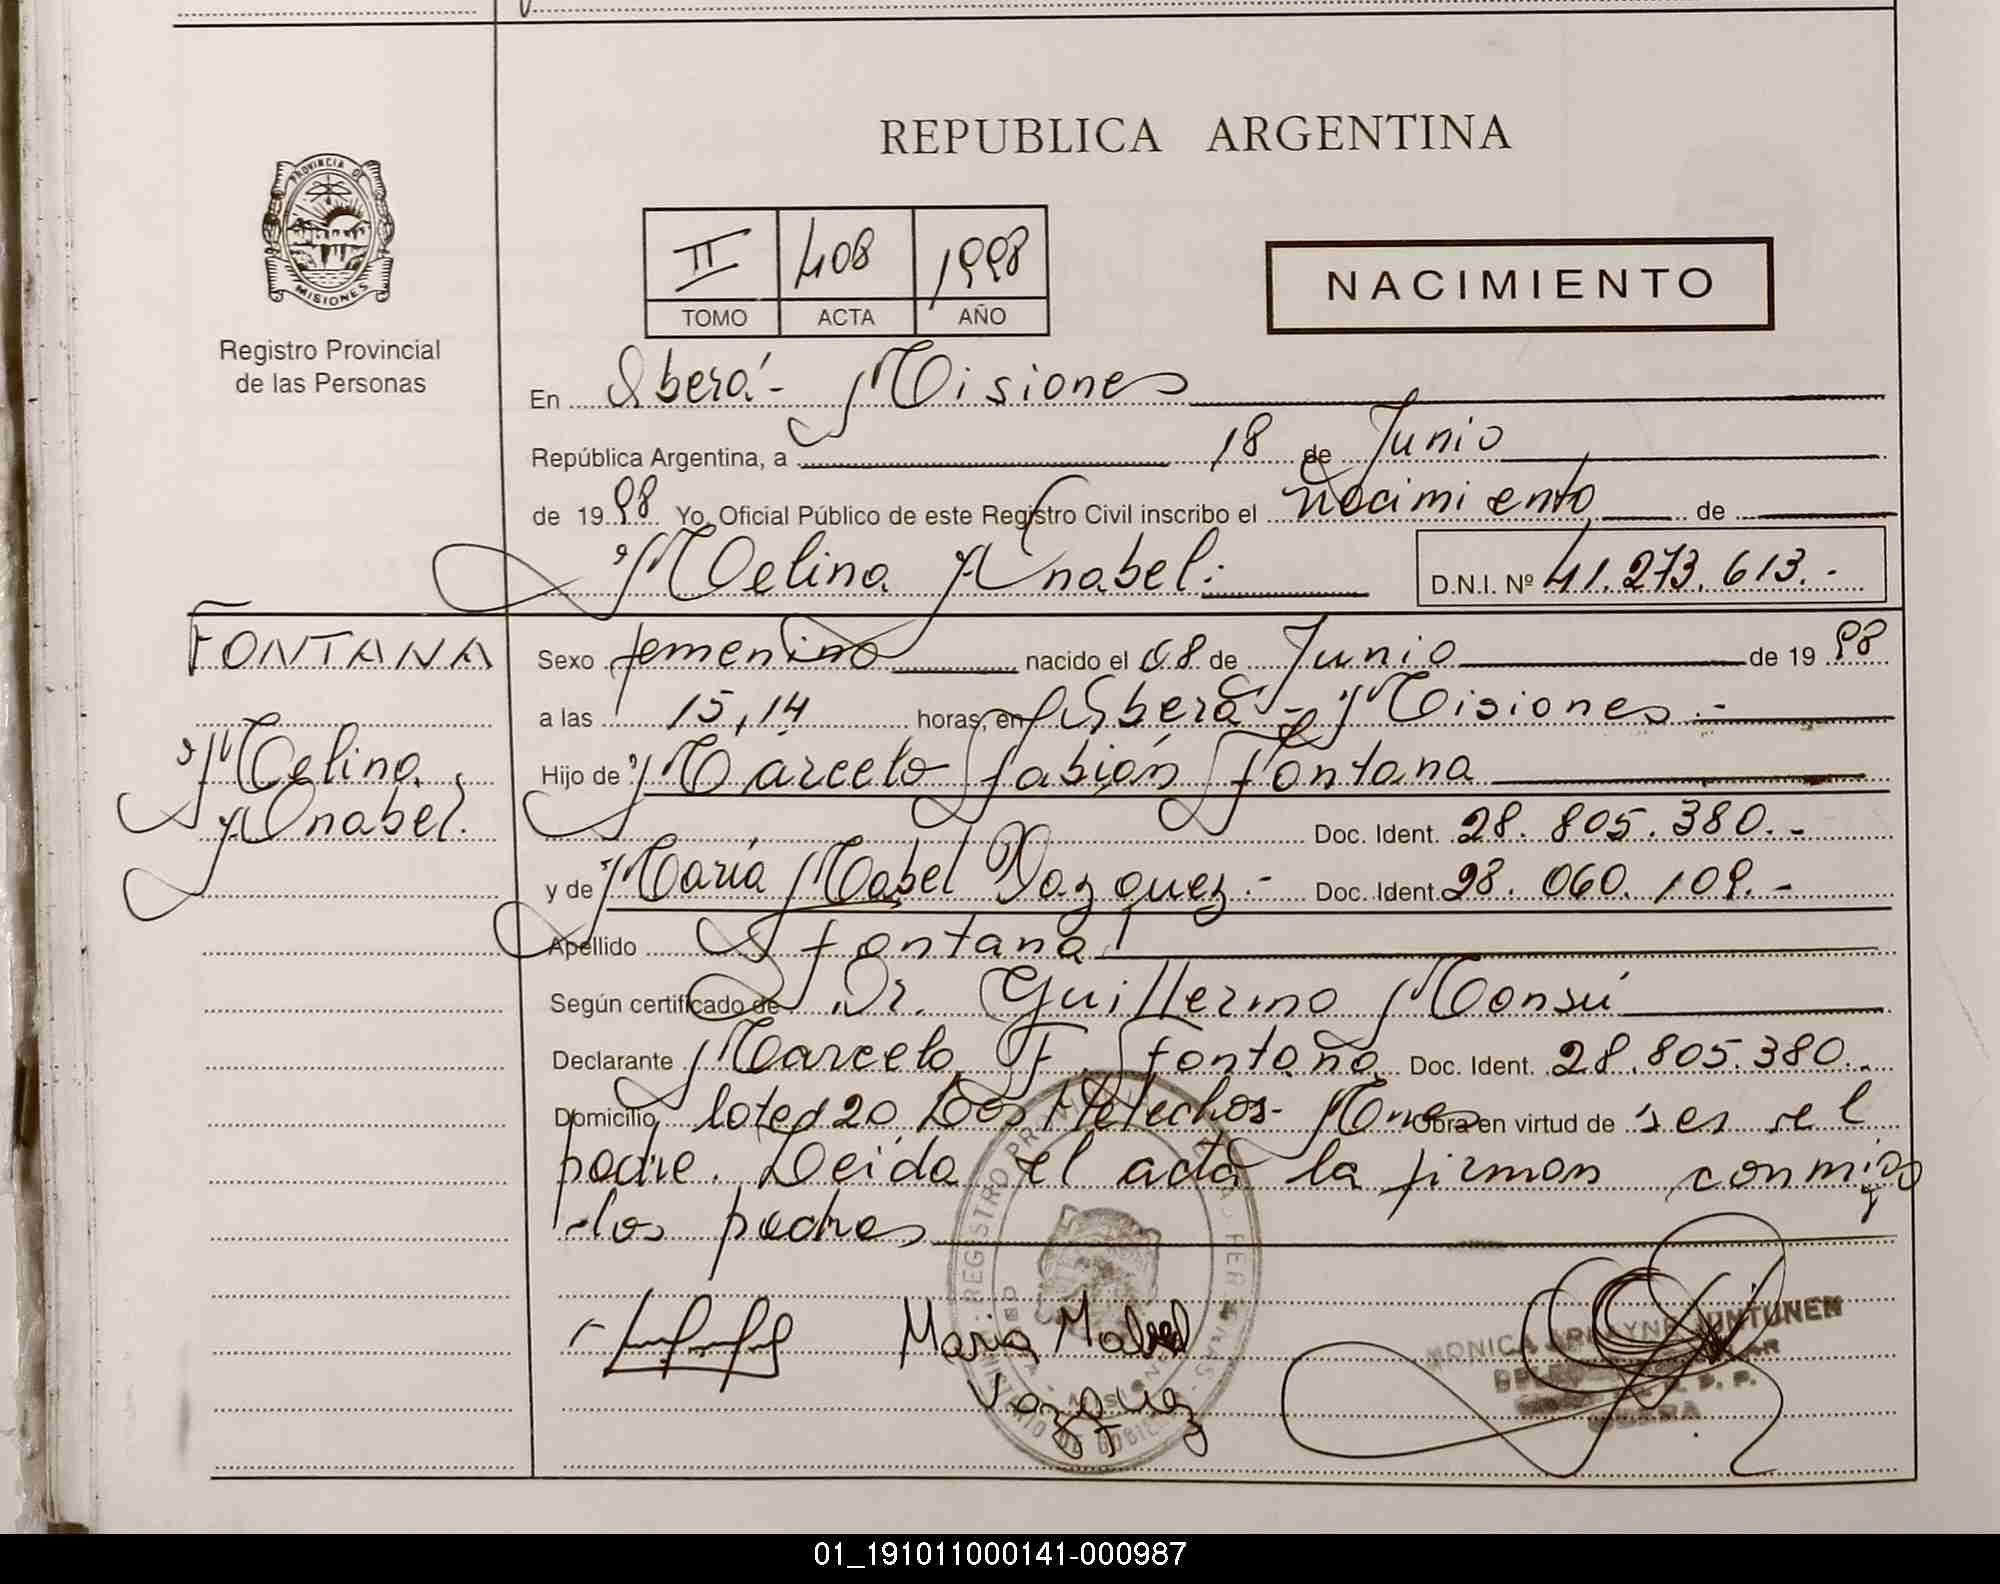 REPUBLICA ARGENTINA
PROVINCIA DE
MISIONES
Registro Provincial
de las Personas
II 408 1998
TOMO ACTA AÑO
NACIMIENTO
En Oberá - Misiones
República Argentina, a 18 de Junio
de 1998 Yo, Oficial Público de este Registro Civil inscribo el nacimiento de
Melina Anabel.- D.N.I. Nº 41.273.613.-
FONTANA
Melina
Anabel.
Sexo femenino nacido el 08 de Junio de 1998
a las 15,14 horas, en Oberá - Misiones.-
Hijo de Marcelo Fabián Fontana
Doc. Ident. 28.805.380.-
y de María Mabel Vazquez.- Doc. Ident. 28.060.109.-
Apellido Fontana
Según certificado de Dr. Guillermo Monsú
Declarante Marcelo F. Fontana Doc. Ident. 28.805.380.-
Domicilio lote 20 Los Helechos - Mnes Obra en virtud de ser el
padre. Leida el acta la firman conmigo
los padres
Maria Mabel
Vazquez
MONICA
OBERA
01_191011000141-000987